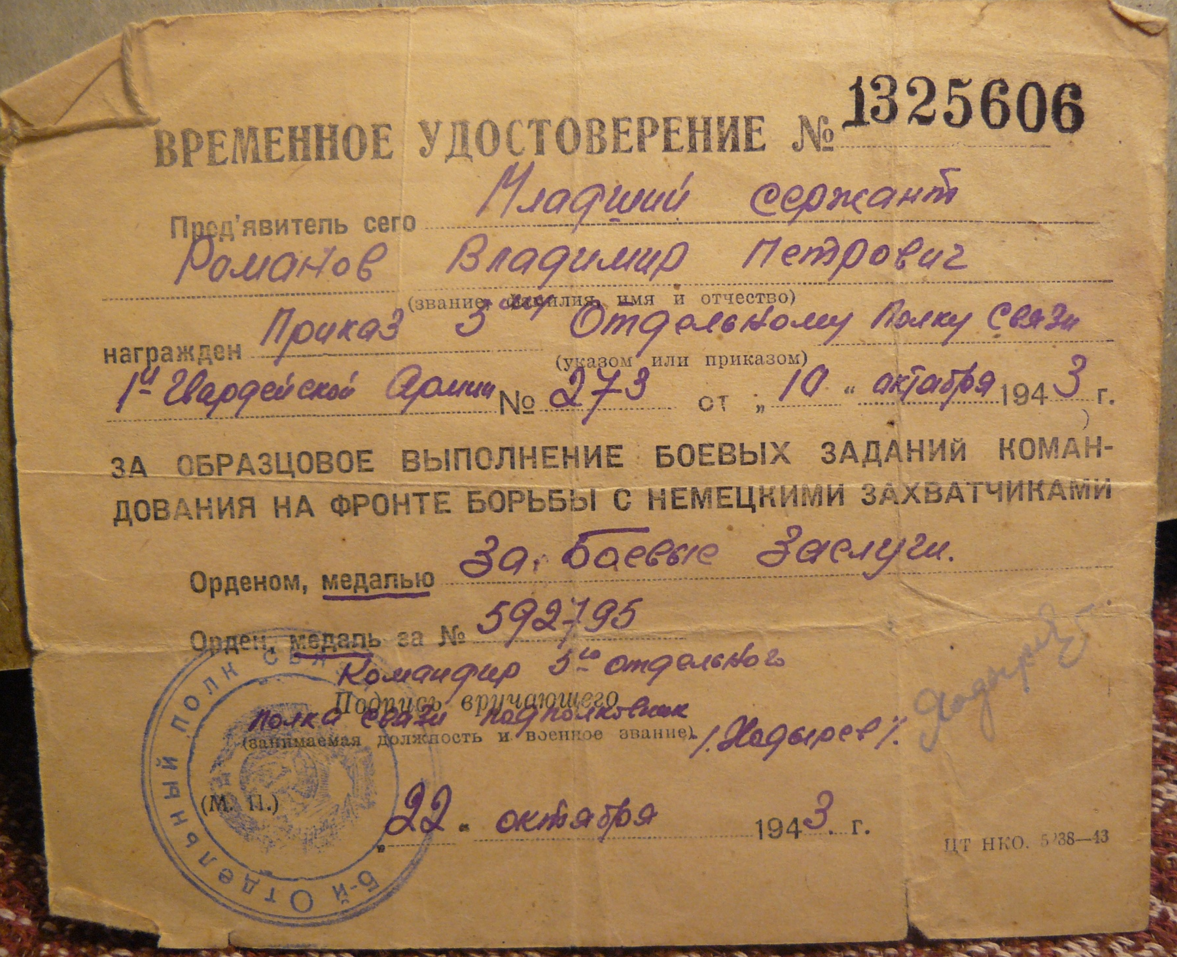 ВРЕМЕННОЕ УДОСТОВЕРЕНИЕ № 1325606
Пред'явитель сего Младший сержант
Романов Владимир Петрович
(звание, фамилия, имя и отчество)
награжден Приказ Отдельному Полку Связи
(указом или приказом)
1й Гвардейской Армии № 273 от „ 10 “ октября 1943 г.
ЗА ОБРАЗЦОВОЕ ВЫПОЛНЕНИЕ БОЕВЫХ ЗАДАНИЙ КОМАН-
ДОВАНИЯ НА ФРОНТЕ БОРЬБЫ С НЕМЕЦКИМИ ЗАХВАТЧИКАМИ
Орденом, медалью За Боевые Заслуги.
Орден, медаль за № 592795
Командир 5го отдельного
Подпись вручающего
полка связи подполковник
(занимаемая должность и военное звание) /Жадырев/.
(М. П.)
„ 22 “ октября 1943 г.
ЦТ НКО. 38—43
5-й ОТДЕЛЬНЫЙ ПОЛК СВЯЗИ